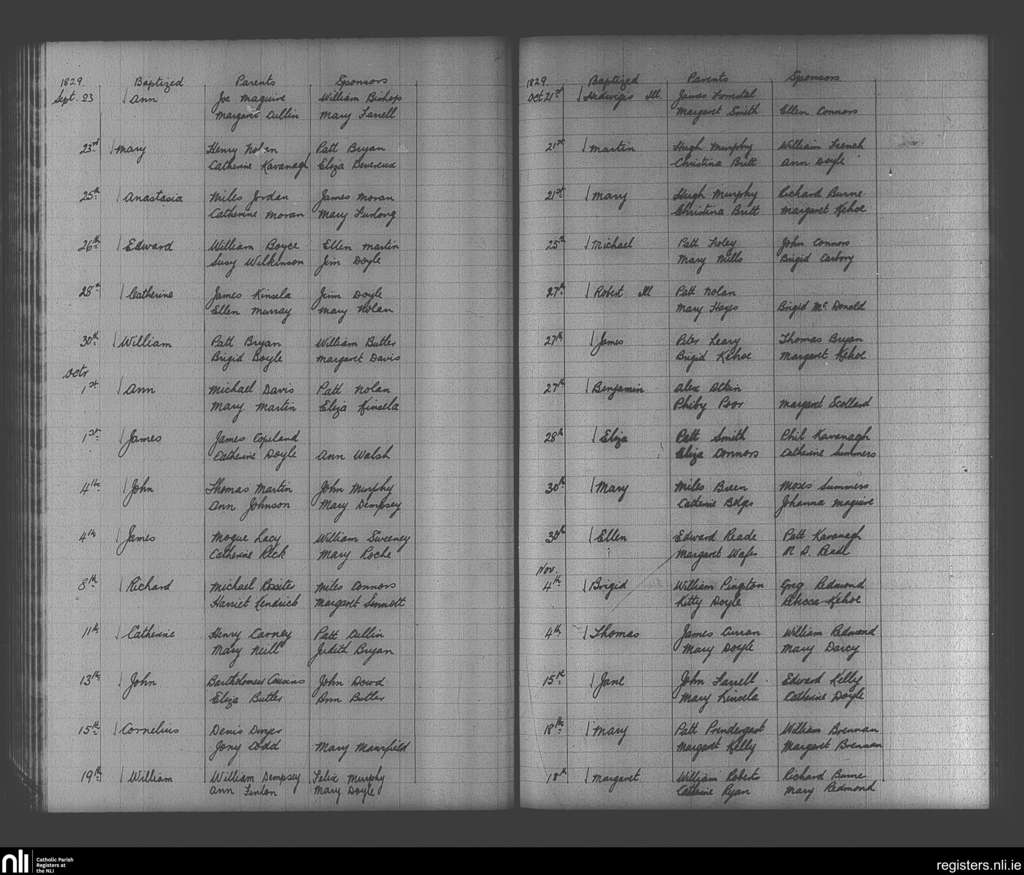 1829 Baptized Parents Sponsors
Sept. 23 Ann Joe Maguire William Bishop
Margaret Cullin Mary Farrell
23rd Mary Henry Nolan Patt Bryan
Catherine Kavanagh Eliza Devereux
25th Anastasia Miles Jordan James Moran
Catherine Moran Mary Furlong
26th Edward William Boyce Ellen Martin
Susy Wilkinson Jim Doyle
28th Catherine James Kinsela Jim Doyle
Ellen Murray Mary Nolan
30th William Patt Bryan William Butler
Brigid Boyle Margaret Davis
Octr
1st Ann Michael Davis Patt Nolan
Mary Martin Eliza Kinsela
1st James James Copeland
Catherine Doyle Ann Walsh
4th John Thomas Martin John Murphy
Ann Johnson Mary Dempsey
4th James Mogue Lacy William Sweeney
Catherine Mary Roche
8th Richard Michael Rositer Miles Connors
Harriet Kendrick Margaret Sinnott
11th Catherine Henry Carney Patt Cullin
Mary Neill Judith Bryan
13th John Bartholomew Cousins John Dowd
Eliza Butler Ann Butler
15th Cornelius Denis
Jony Codd Mary
19th William William Dempsey Felix Murphy
Ann Fenlon Mary Doyle
1829 Baptized Parents Sponsors
Oct 21st Ill James
Margaret Smith Ellen Connors
21st Martin Hugh Murphy William French
Christina Britt Ann Doyle
21st Mary Hugh Murphy Richard Burne
Christina Britt Margaret Kehoe
25th Michael Patt Foley John Connors
Mary Mills Brigid Carbory
27th Robert Ill Patt Nolan
Mary Hayes Brigid McDonald
27th James Peter Leary Thomas Bryan
Brigid Kehoe Margaret Kehoe
27th Benjamin Alex Atkin
Phiby Poor Margaret Scollard
28th Eliza Patt Smith Phil Kavanagh
Eliza Connors Catherine Summers
30th Mary Miles Breen Moses Summers
Catherine Johanna Maguire
30th Ellen Edward Reade Patt Kavanagh
Margaret
Nov.
4th Brigid William Greg Redmond
Kitty Doyle Rebecca Kehoe
4th Thomas James Curran William Redmond
Mary Doyle Mary Darcy
15th Jane John Farrell Edward Kelly
Mary Kinsela Catherine Doyle
18th Mary Patt Prindergast William Brennan
Margaret Kelly Margaret Brennan
18th Margaret William Roberts Richard Burne
Catherine Ryan Mary Redmond
nli Catholic Parish
Registers at
the NLI
registers.nli.ie